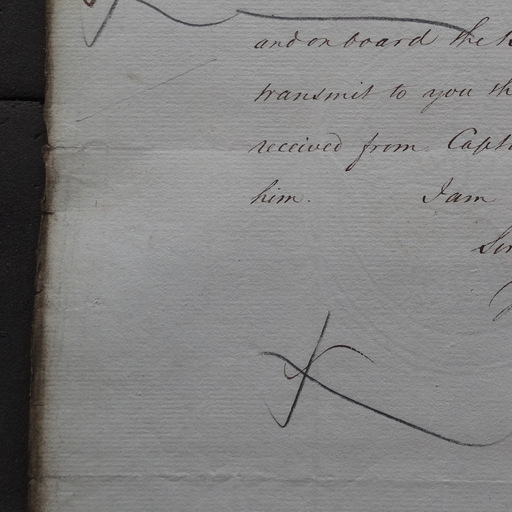 and on board the
transmit to you
received from Capt
him. I am